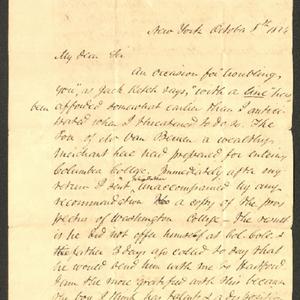 New York October 8th 1824
My Dear Sir
An occasion for "troubling
you", as Jack Ketch says, "with a line" has
been afforded somewhat earlier than I antici-
pated when I threatened to do so. The
Son of Mr Van Beuren a wealthy
merchant had now prepared for entering
Columbia College. Immediately after my
return I sent, unaccompanied by any
recommendation a copy of the pros
pectus of Washington College - The result
is he did not offer himself at Col. Col. &
the father 3 days ago called to say that
he would send him with me to Hartford
I am the more gratified with this because
the boy I think has talents & a disposition